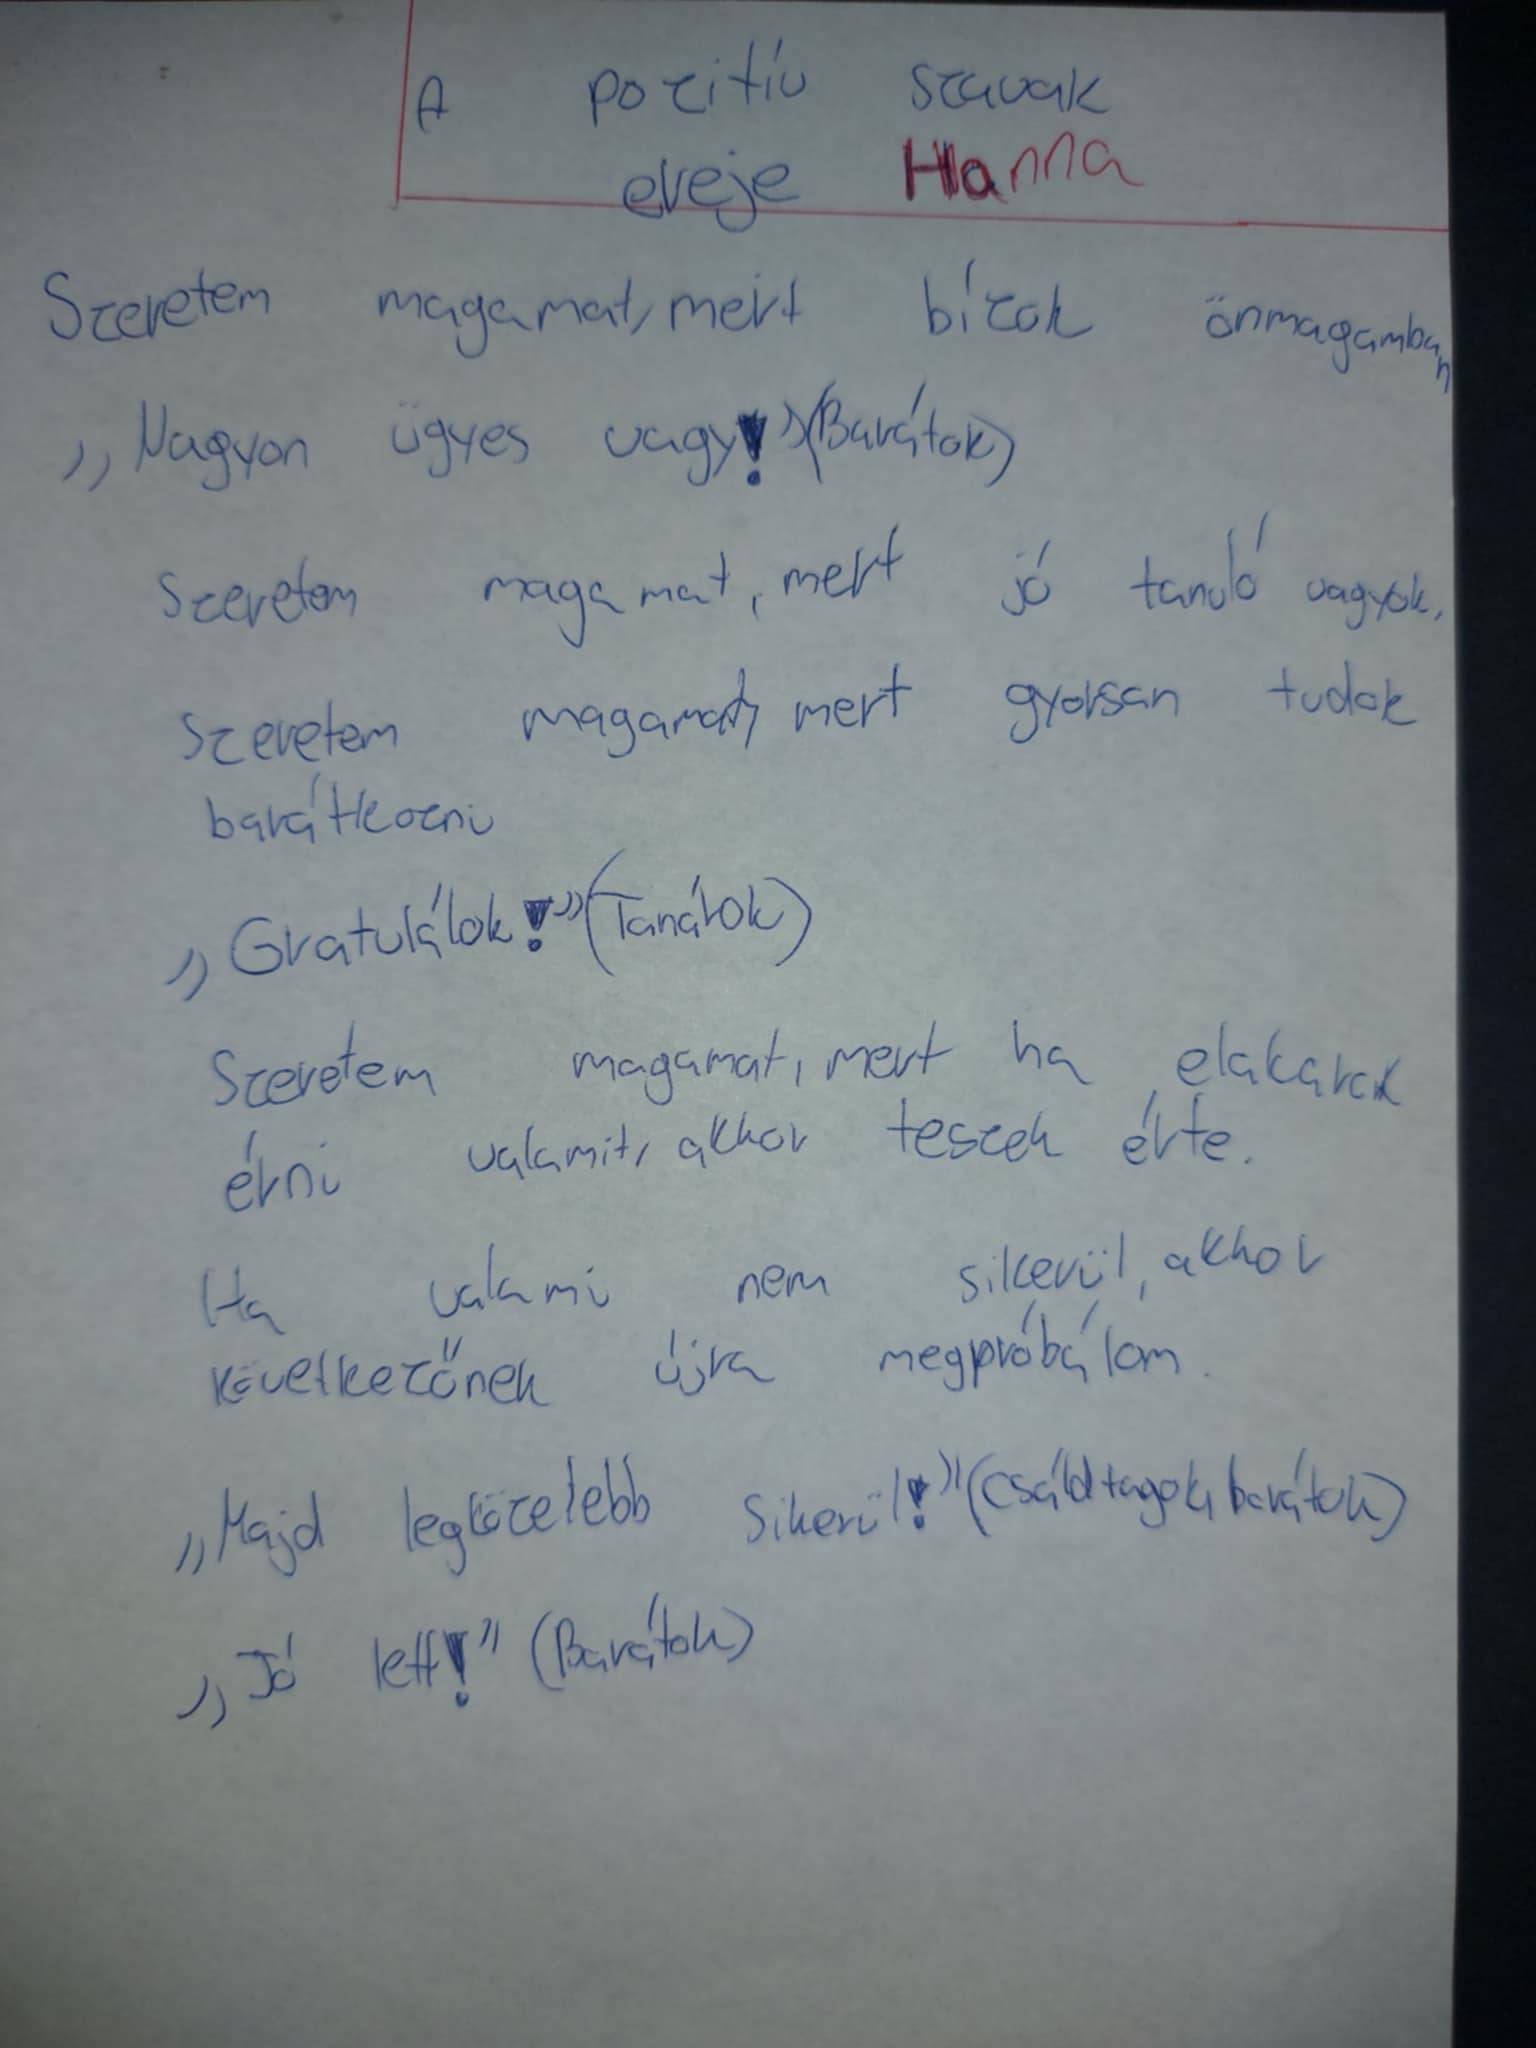 A pozitív szavak
ereje Hanna
Szeretem magamat, mert bízok önmagamban
„Nagyon ügyes vagy!” (Barátok)
Szeretem magamat, mert jó tanuló vagyok.
Szeretem magamat, mert gyorsan tudok
barátkozni
„Gratulálok!” (Tanárok)
Szeretem magamat, mert ha elakarok
érni valamit, akkor teszek érte.
Ha valami nem sikerül, akkor
következőnek újra megpróbálom.
„Majd legközelebb sikerül!” (Családtagok, barátok)
„Jó lett!” (Barátok)